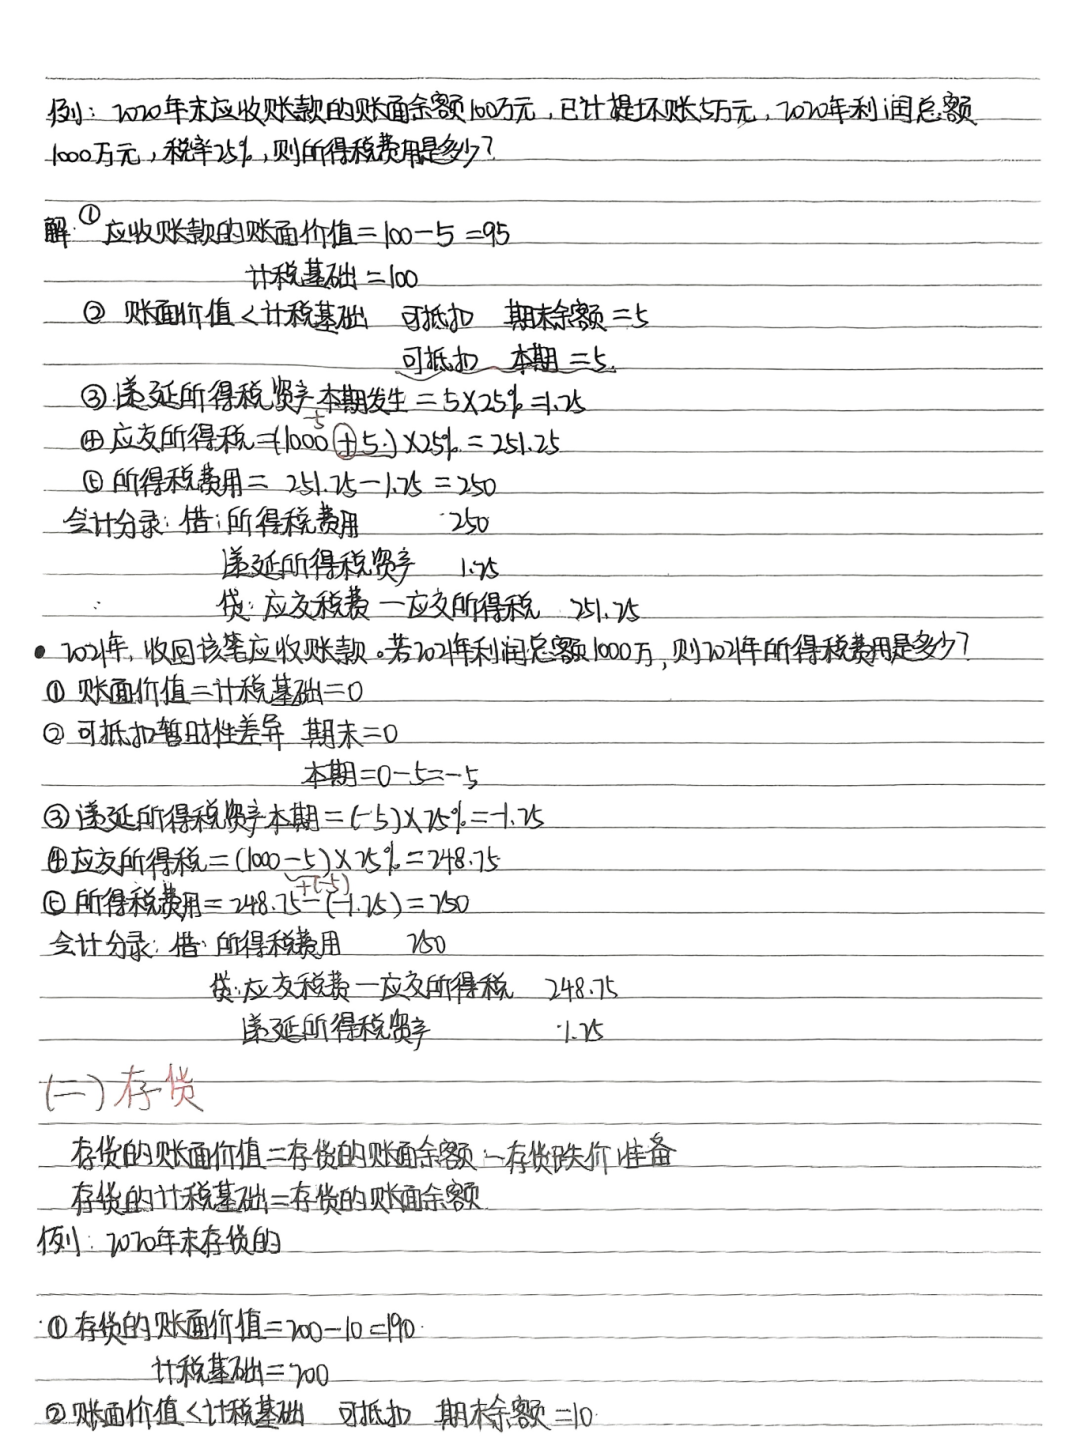 例：2020年末应收账款的账面余额100万元，已计提坏账5万元，2020年利润总额
1000万元，税率25%，则所得税费用是多少？
解：①应收账款的账面价值=100-5=95
计税基础=100
② 账面价值<计税基础 可抵扣 期末余额=5
可抵扣 本期=5.
③递延所得税资产本期发生=5×25%=1.25
-5
④应交所得税=(1000+5)×25%=251.25
⑤所得税费用=251.25-1.25=250
会计分录：借：所得税费用 250
递延所得税资产 1.25
贷：应交税费—应交所得税 251.25
• 2021年，收回该笔应收账款。若2021年利润总额1000万，则2021年所得税费用是多少？
① 账面价值=计税基础=0
② 可抵扣暂时性差异 期末=0
本期=0-5=-5
③递延所得税资产本期=(-5)×25%=-1.25
④应交所得税=(1000-5)×25%=248.75
+(-5)
⑤所得税费用=248.75-(-1.25)=250
会计分录：借：所得税费用 250
贷：应交税费—应交所得税 248.75
递延所得税资产 1.25
(二)存货
存货的账面价值=存货的账面余额-存货跌价准备
存货的计税基础=存货的账面余额
例：2020年末存货的
①存货的账面价值=200-10=190
计税基础=200
②账面价值<计税基础 可抵扣 期末余额=10